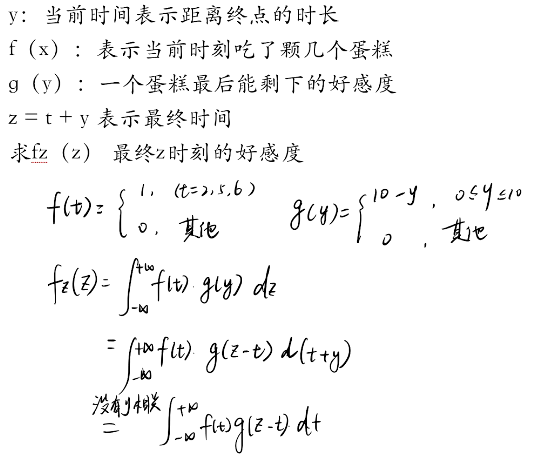 y: 当前时间表示距离终点的时长
f (x) : 表示当前时刻吃了颗几个蛋糕
g (y) : 一个蛋糕最后能剩下的好感度
z = t + y 表示最终时间
求fz (z) 最终z时刻的好感度
f(t) = { 1, (t=2,5,6) 0, 其他 g(y) = { 10-y, 0≤y≤10 0, 其他
fz(z) = ∫_{-∞}^{+∞} f(t) · g(y) dz
= ∫_{-∞}^{+∞} f(t) · g(z-t) d(t+y)
没有y相关 = ∫_{-∞}^{+∞} f(t) g(z-t) dt